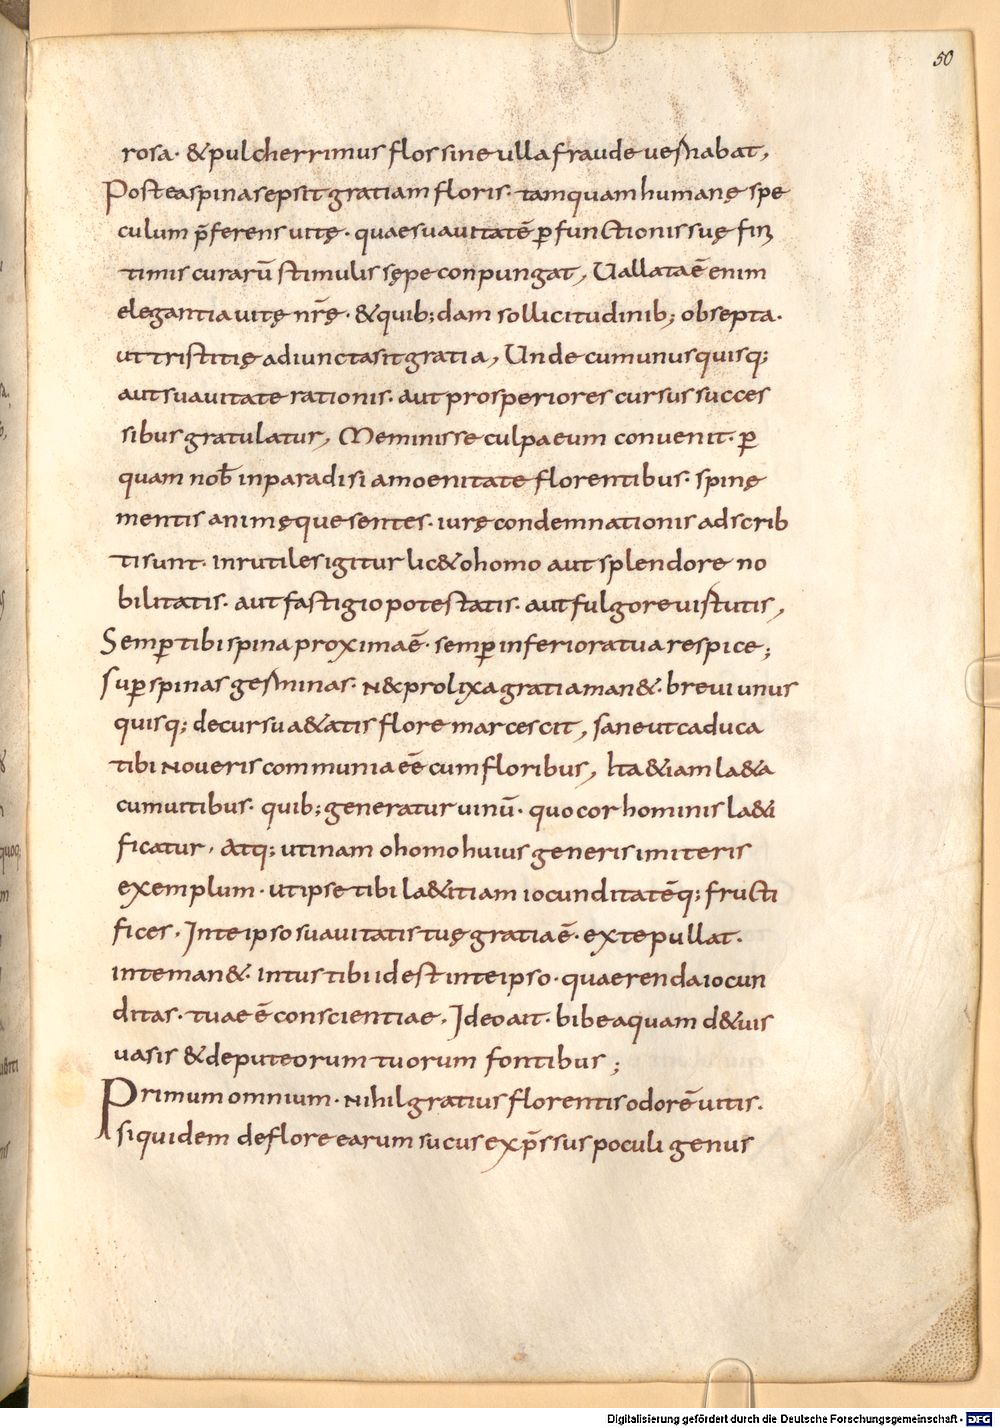 50
rosa· &pulcherrimus flos sine ulla fraude vernabat,
Postea spina sepsit gratiam floris· tamquam humanę spe
culum p̄ferens vitę· quae suavitatē ꝑfunctionis suę fini
timis curarū stimulis sępe conpungat, Uallata ē enim
elegantia vitę nr̄ę· & quib; dam sollicitudinib; obsepta·
ut tristitię adiuncta sit gratia, Unde cum unusquisq;
aut suavitate rationis· aut prosperiores cursus succes
sibus gratulatur, Meminisse culpae eum convenit· ꝑ
quam nob̄ in paradisi amoenitate florentibus· spinę
mentis animęque sentes· iurę condemnationis adscrib
ti sunt· inrutiles igitur lic& o homo aut splendore no
bilitatis· aut fastigio potestatis· aut fulgore virtutis,
Semꝑ tibi spina proxima ē· semꝑ inferiora tua respice;
suꝑ spinas germinas· nec prolixa gratia man&· brevi unus
quisq; decursu a&atis flore marcescit, sane ut caduca
tibi noveris communia eē cum floribus, Ita &iam la&a
cum vitibus· quib; generatur vinū· quo cor hominis la&i
ficatur· Atq; utinam o homo huius generis imiteris
exemplum· ut ipse tibi la&itiam iocunditatēq; fructi
fices· In te ipso suavitatis tuę gratia ē· ex te pullat·
in te man&· intus tibi id est in te ipso· quaerenda iocun
ditas· tuae ē conscientiae· Ideo ait· bibe aquam d& uis
vasis & de puteorum tuorum fontibus;
Primum omnium· nihil gratius florentis odore ē vitis·
siquidem de flore earum sucus exp̄ssus poculi genus
Digitalisierung gefördert durch die Deutsche Forschungsgemeinschaft - DFG